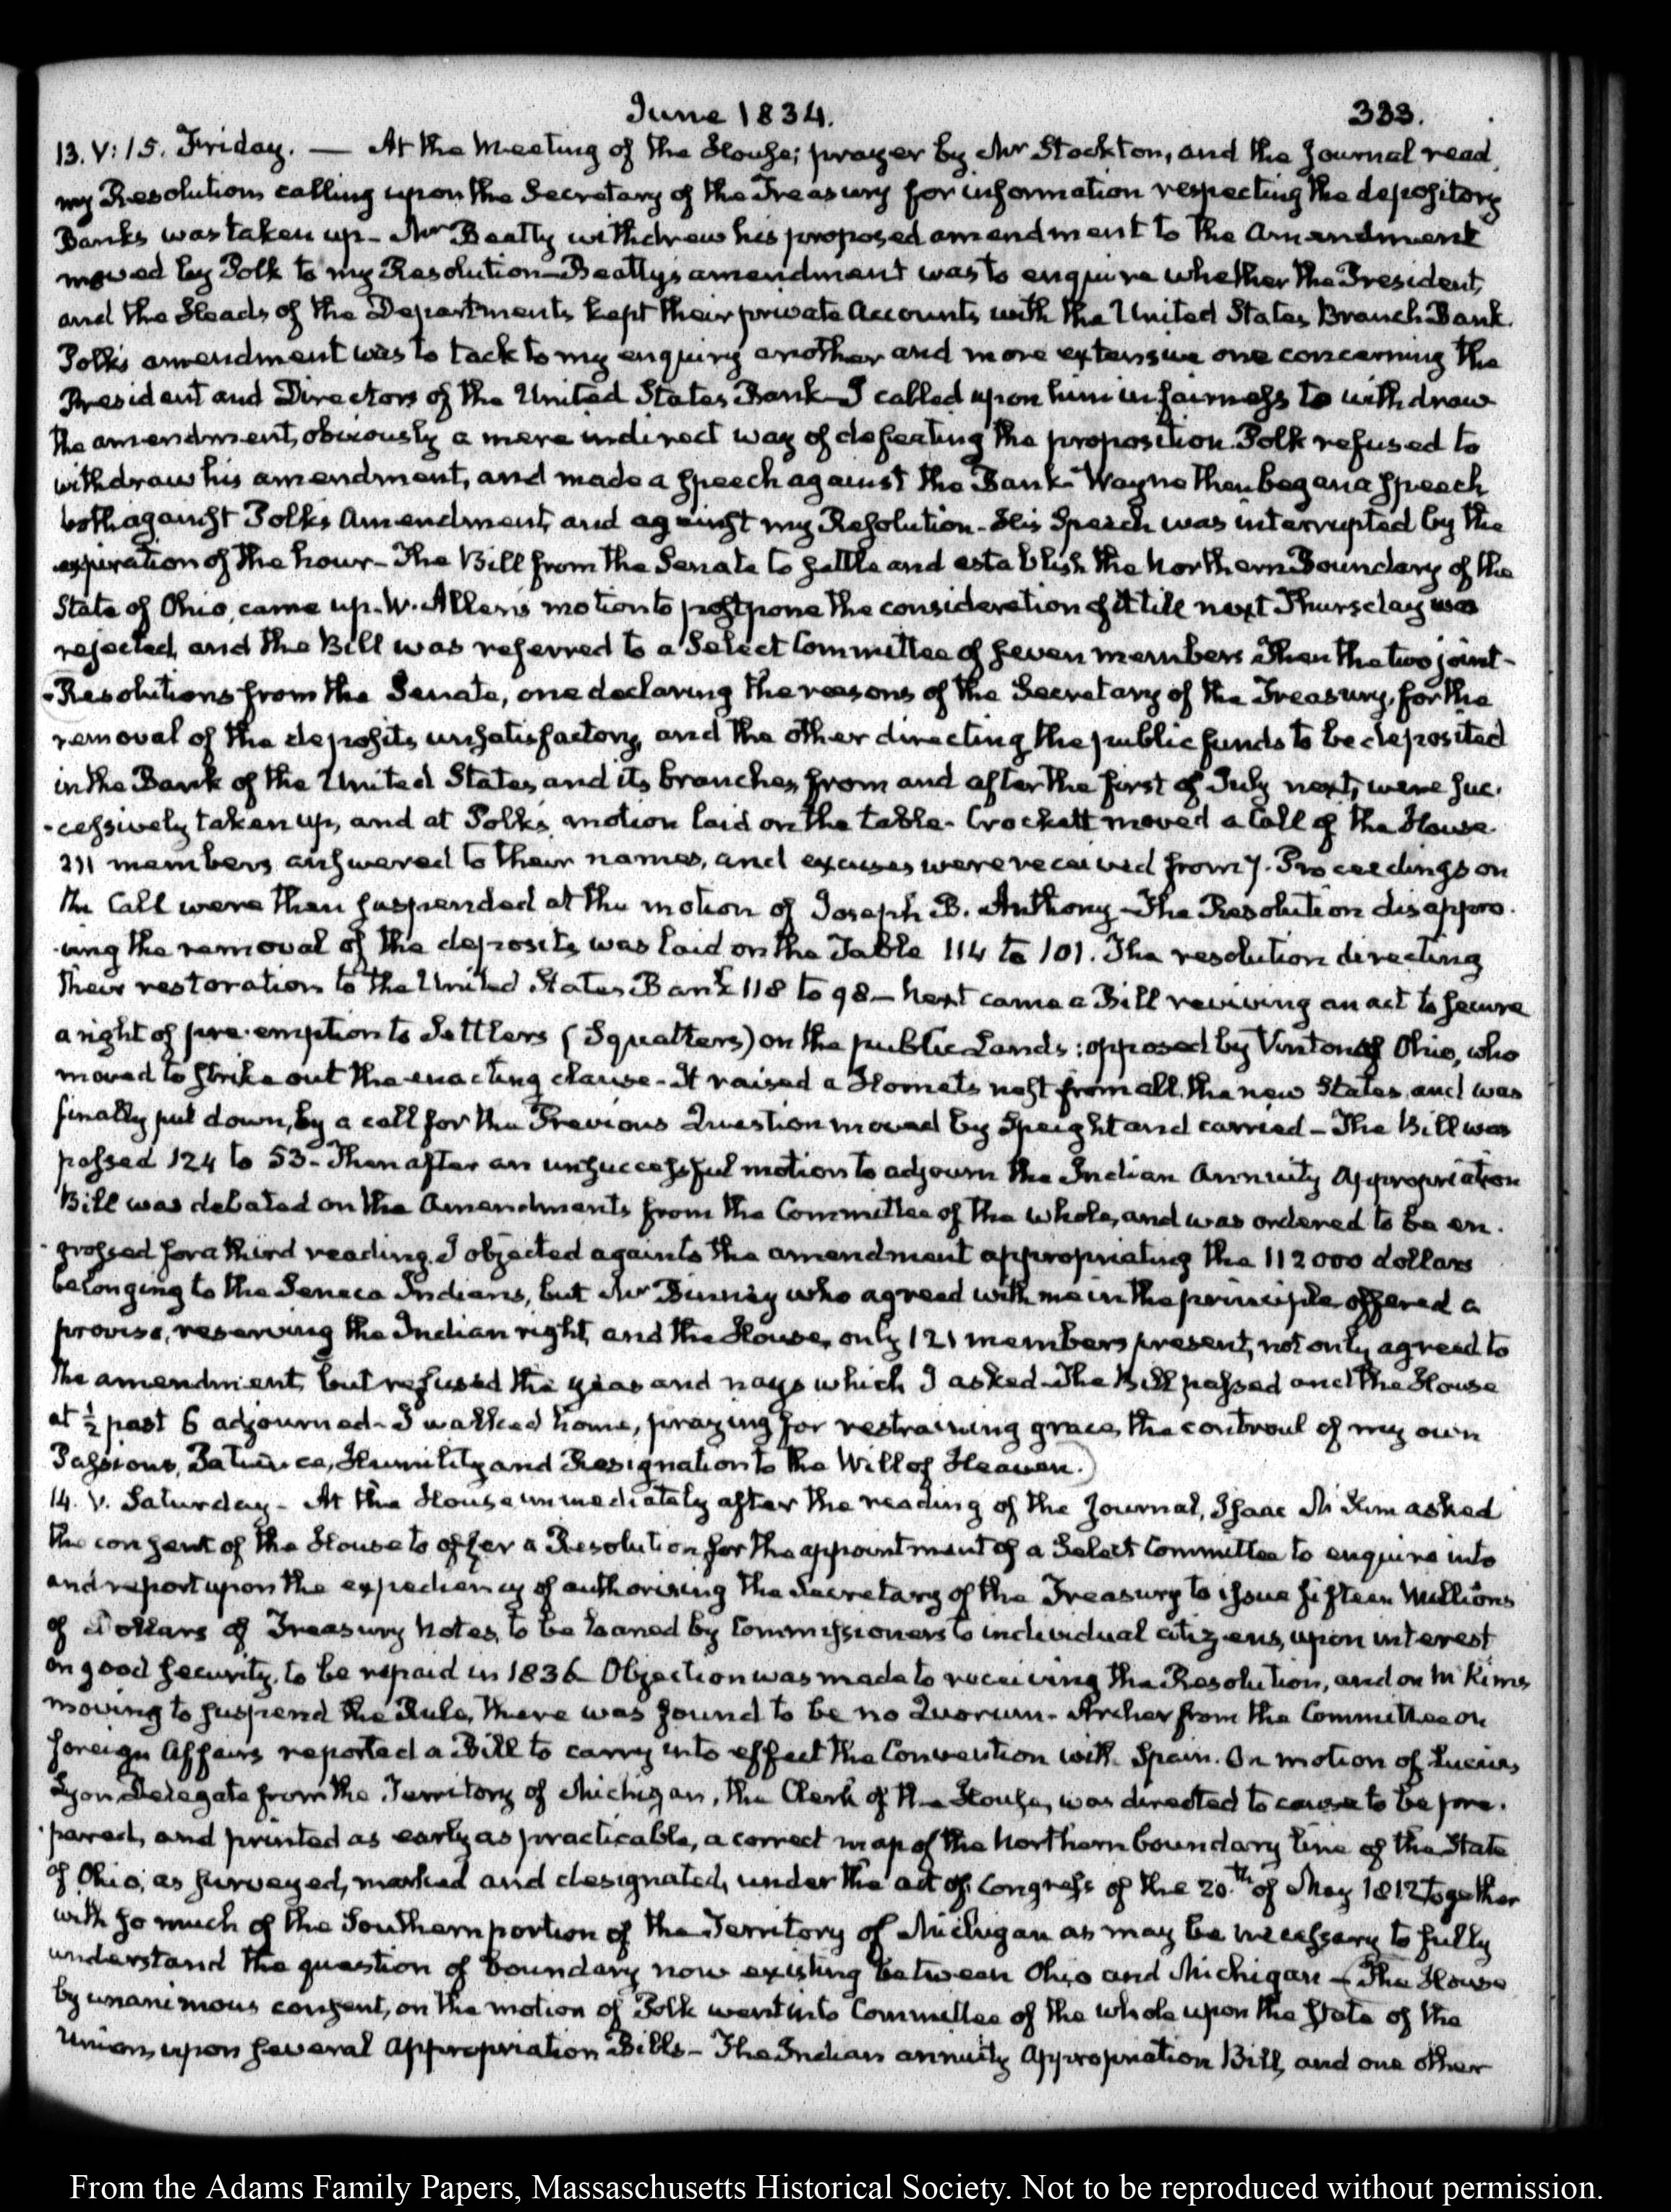 June 1834. 333.
13. V:15. Friday. — At the Meeting of the House; prayer by Mr Stockton, and the Journal read,
my Resolution calling upon the Secretary of the Treasury for information respecting the depository
Banks was taken up - Mr Beatty withdrew his proposed amendment to the Amendment
moved by Polk to my Resolution - Beatty's amendment was to enquire whether the President,
and the Heads of the Departments kept their private Accounts with the United States Branch Bank.
Polk's amendment was to tack to my enquiry another and more extensive one concerning the
President and Directors of the United States Bank - I called upon him in fairness to withdraw
the amendment, obviously a mere indirect way of defeating the proposition. Polk refused to
withdraw his amendment, and made a speech against the Bank - Wayne then began a speech
both against Polk's Amendment, and against my Resolution - His Speech was interrupted by the
expiration of the hour - The Bill from the Senate to settle and establish the Northern Boundary of the
State of Ohio, came up - W. Allen's motion to postpone the consideration of it till next Thursday was
rejected, and the Bill was referred to a Select Committee of seven members. Then the two joint-
-Resolutions from the Senate, one declaring the reasons of the Secretary of the Treasury, for the
removal of the deposits unsatisfactory, and the other directing the public funds to be deposited
in the Bank of the United States, and its branches, from and after the first of July next, were suc-
-cessively taken up, and at Polk's motion laid on the table - Crockett moved a Call of the House
211 members answered to their names, and excuses were received from 7. Proceedings on
the Call were then suspended at the motion of Joseph B. Anthony - The Resolution disappro-
-ving the removal of the deposits was laid on the Table 114 to 101. The resolution directing
their restoration to the United States Bank 118 to 98 - Next came a Bill reviving an act to secure
a right of pre-emption to Settlers (Squatters) on the public Lands; opposed by Vinton of Ohio, who
moved to strike out the enacting clause - It raised a Hornets nest from all the new States, and was
finally put down, by a call for the Previous Question moved by Speight and carried - The Bill was
passed 124 to 53 - Then after an unsuccessful motion to adjourn the Indian Annuity Appropriation
Bill was debated on the Amendments from the Committee of the whole, and was ordered to be en-
-grossed for a third reading. I objected against the amendment appropriating the 112000 dollars
belonging to the Seneca Indians, but Mr Binney who agreed with me in the principle offered a
proviso, reserving the Indian right, and the House, only 121 members present, not only agreed to
the amendment, but refused the yeas and nays which I asked - The Bill passed and the House
at ½ past 6 adjourned - I walked home, praying for restraining grace, the controul of my own
Passions, Patience, Humility and Resignation to the Will of Heaven.)
14. V. Saturday - At the House immediately after the reading of the Journal, Isaac McKim asked
the consent of the House to offer a Resolution for the appointment of a Select Committee to enquire into
and report upon the expediency of authorising the Secretary of the Treasury to issue fifteen Millions
of Dollars of Treasury Notes, to be loaned by Commissioners to individual citizens, upon interest
on good security, to be repaid in 1836 - Objection was made to receiving the Resolution, and on McKim's
moving to suspend the Rule, there was found to be no Quorum - Archer from the Committee on
foreign Affairs reported a Bill to carry into effect the Convention with Spain. On motion of Lucius
Lyon Delegate from the Territory of Michigan, the Clerk of the House, was directed to cause to be pre-
-pared, and printed as early as practicable, a correct map of the Northern boundary line of the State
of Ohio, as surveyed, marked and designated, under the act of Congress of the 20.th of May 1812 together
with so much of the Southern portion of the Territory of Michigan as may be necessary to fully
understand the question of boundary now existing between Ohio and Michigan - (The House
by unanimous consent, on the motion of Polk went into Committee of the whole upon the state of the
Union, upon several Appropriation Bills - The Indian annuity Appropriation Bill, and one other
From the Adams Family Papers, Massachusetts Historical Society. Not to be reproduced without permission.